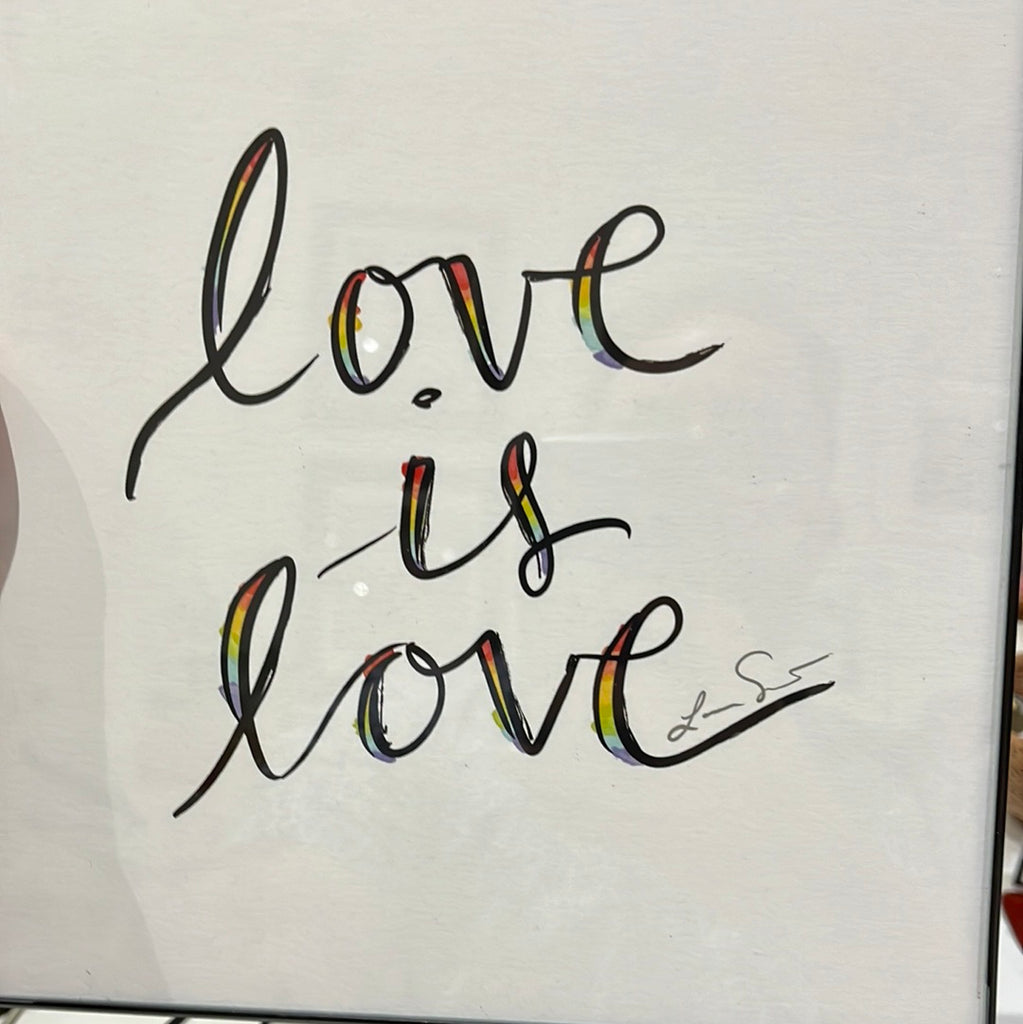 love
is
love